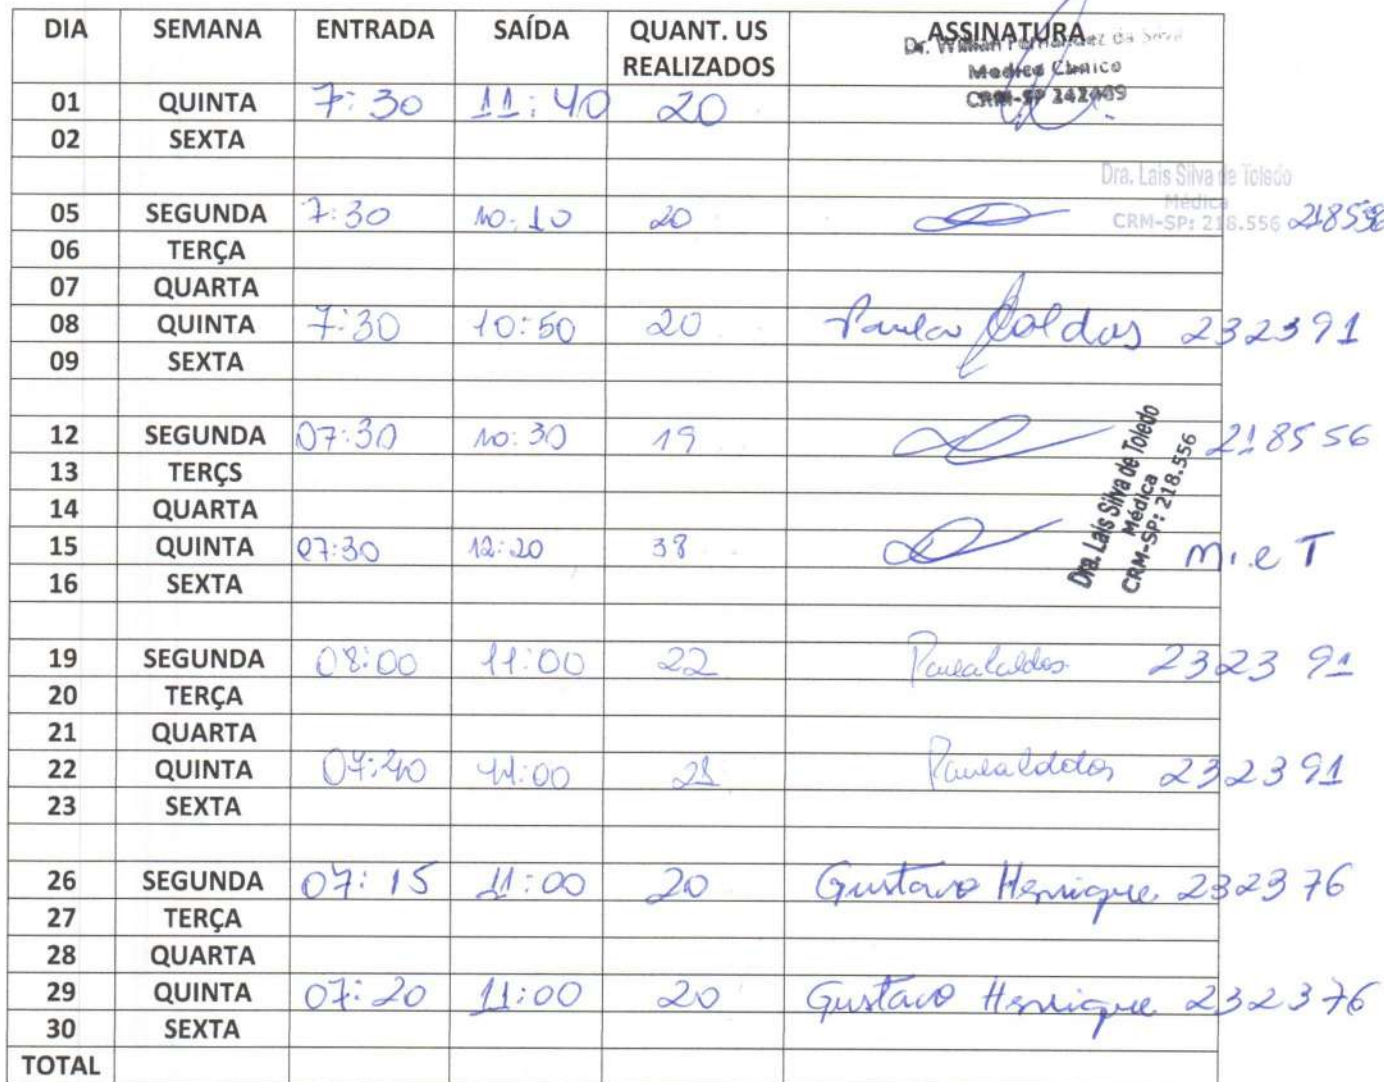 DIA SEMANA ENTRADA SAÍDA QUANT. US REALIZADOS ASSINATURA
Dr. Willian Fernandez da Silva
Medico Clinico
CRM-SP
01 QUINTA 7:30 11:40 20
02 SEXTA
Dra. Lais Silva de Toledo
Médica
CRM-SP: 218.556
05 SEGUNDA 7:30 10:10 20 218556
06 TERÇA
07 QUARTA
08 QUINTA 7:30 10:50 20 Paula Caldas 232391
09 SEXTA
12 SEGUNDA 07:30 10:30 19 218556
13 TERÇS
14 QUARTA
Dra. Lais Silva de Toledo
Médica
CRM-SP: 218.556
15 QUINTA 07:30 12:20 38 M.e T
16 SEXTA
19 SEGUNDA 08:00 11:00 22 Paula Caldas 232391
20 TERÇA
21 QUARTA
22 QUINTA 07:20 11:00 21 Paula Caldas 232391
23 SEXTA
26 SEGUNDA 07:15 11:00 20 Gustavo Henrique 232376
27 TERÇA
28 QUARTA
29 QUINTA 07:20 11:00 20 Gustavo Henrique 232376
30 SEXTA
TOTAL